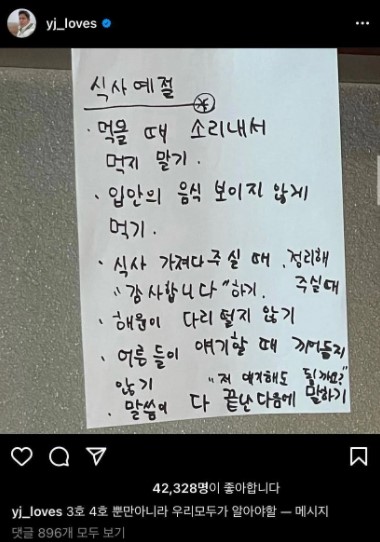 yj_loves
식사예절
※
· 먹을 때 소리내서
먹지 말기.
· 입안의 음식 보이지 않게
먹기.
· 식사 가져다주실 때, 정리해
"감사합니다"하기. 주실때
· 해율이 다리 떨지 않기
· 어른들이 얘기할 때 끼어들지
않기 "저 얘기해도 될까요?"
· 말씀이 다 끝난다음에 말하기
42,328명이 좋아합니다
yj_loves 3호 4호 뿐만아니라 우리모두가 알아야할 — 메시지
댓글 896개 모두 보기